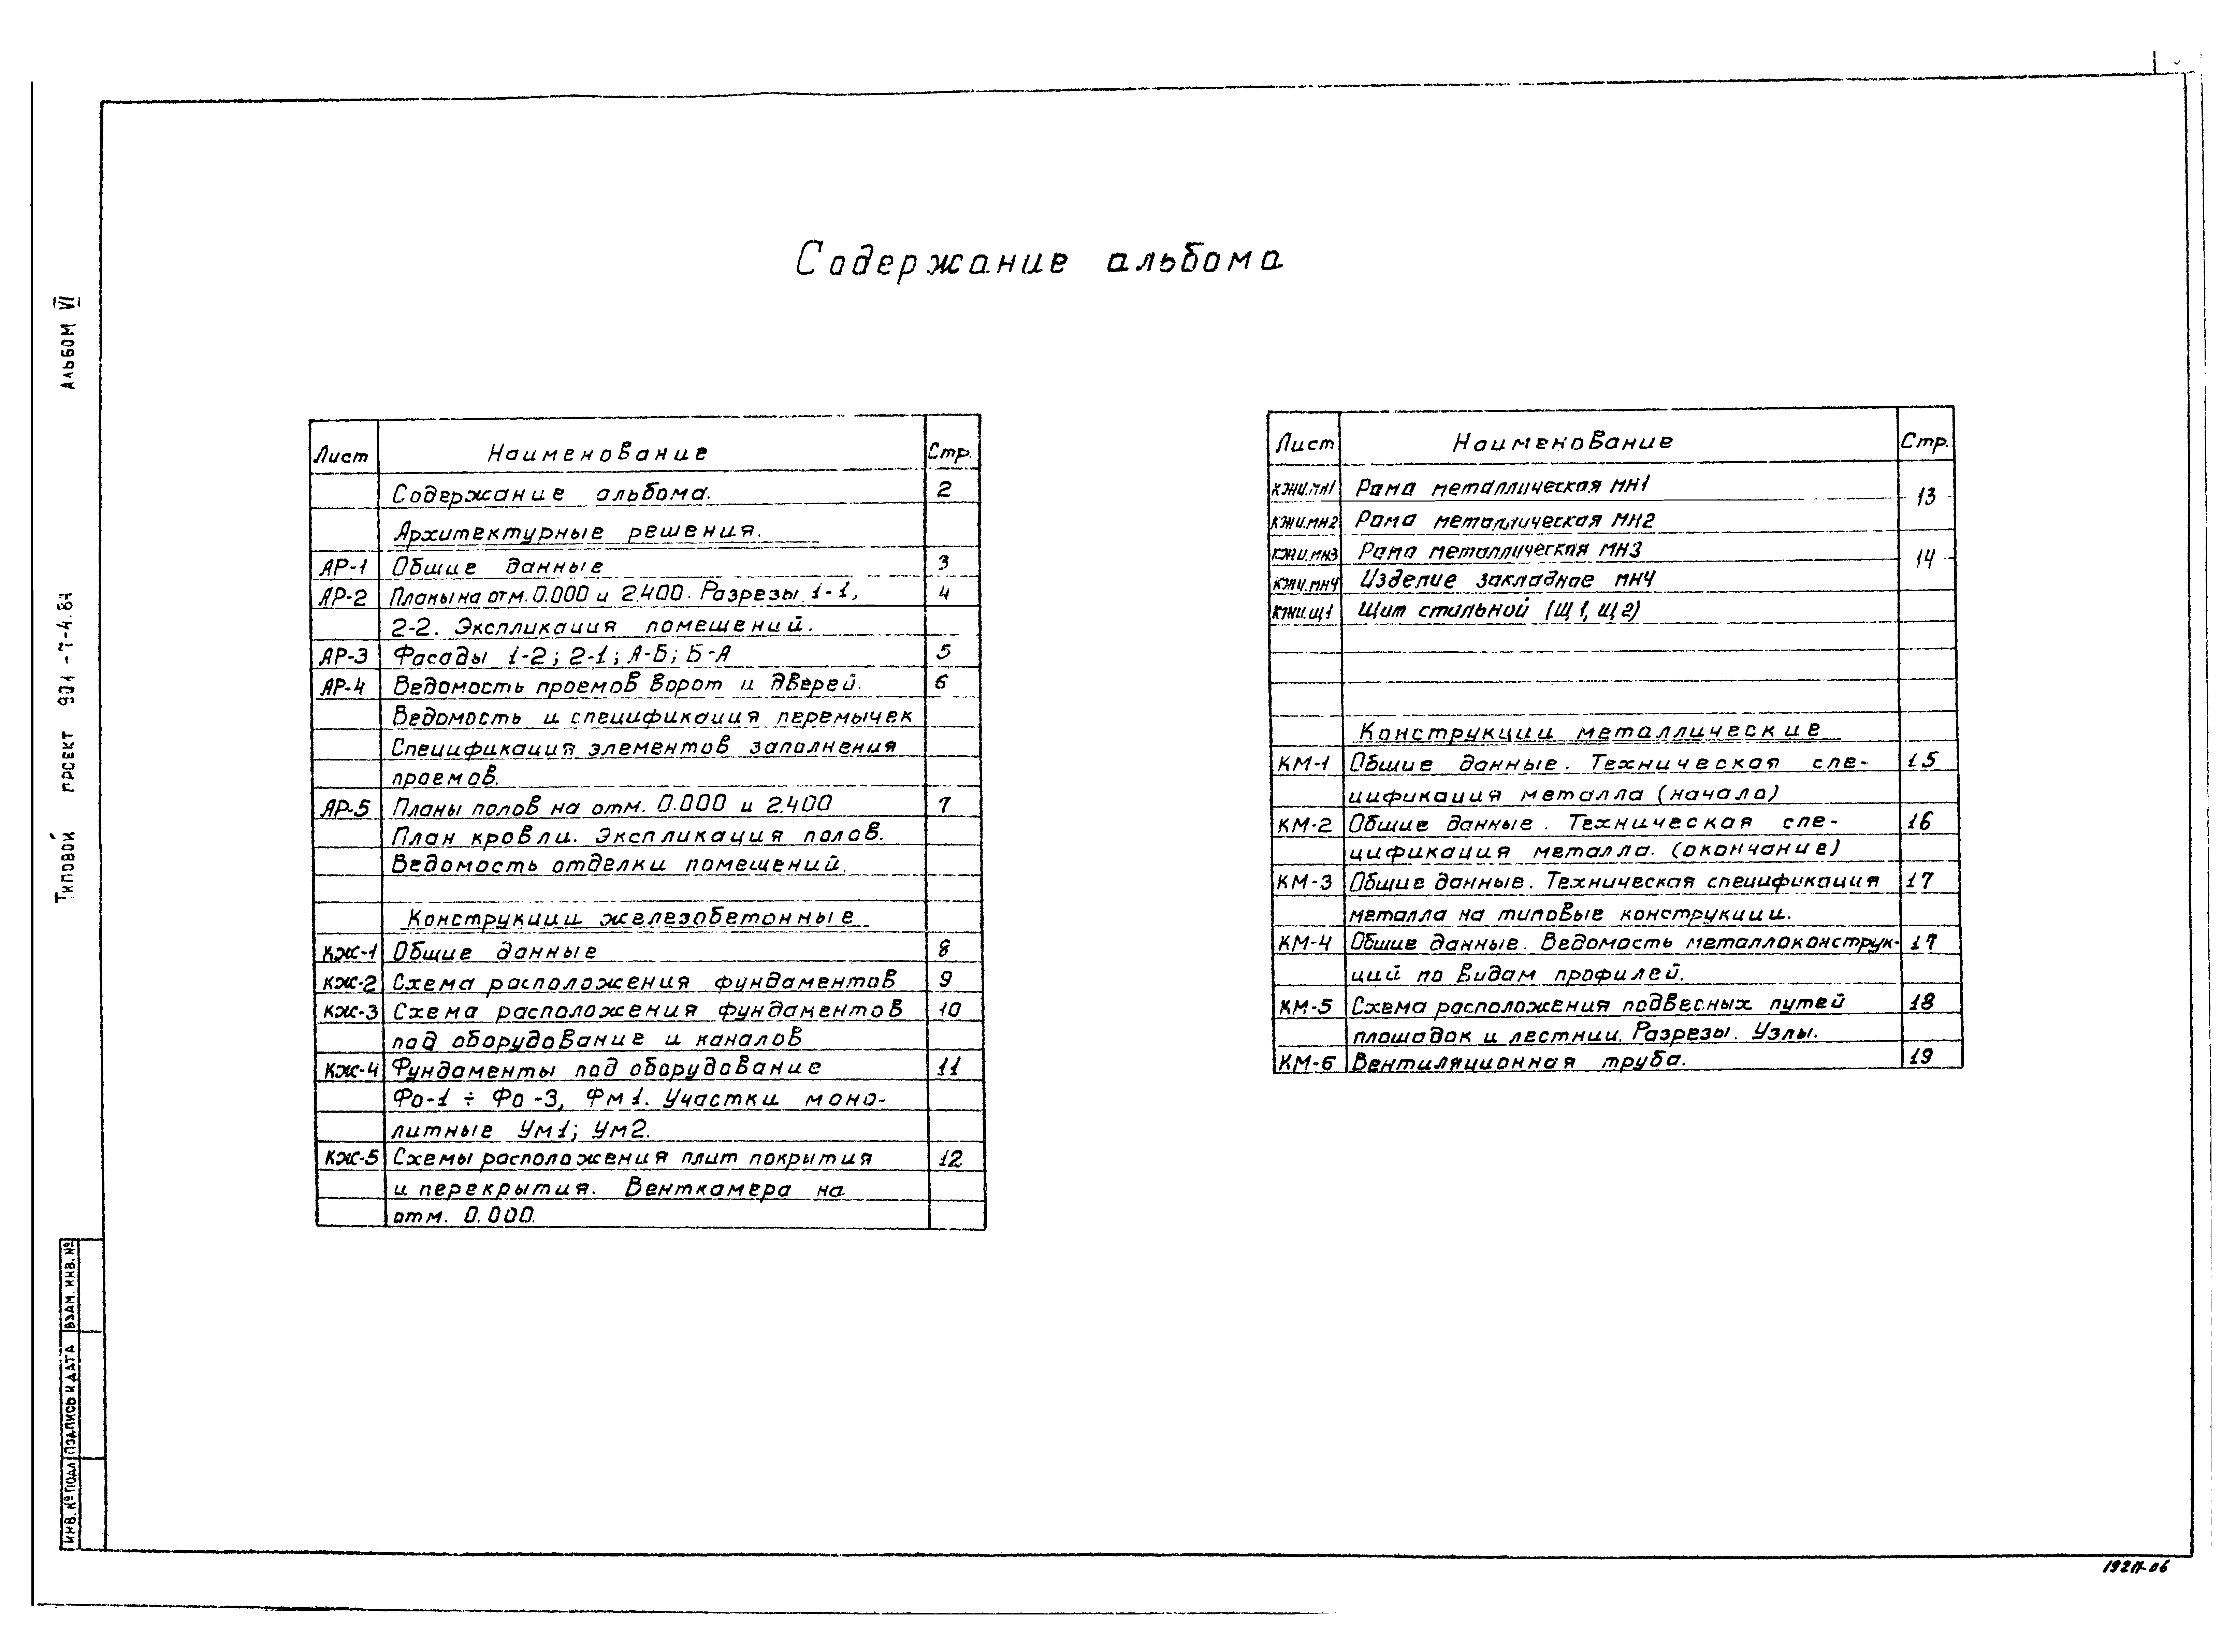 Содержание альбома
Лист Наименование Стр.
Содержание альбома. 2
Архитектурные решения.
АР-1 Общие данные 3
АР-2 Планы на отм. 0.000 и 2.400. Разрезы 1-1, 4
2-2. Экспликация помещений.
АР-3 Фасады 1-2; 2-1; А-Б; Б-А 5
АР-4 Ведомость проемов ворот и дверей. 6
Ведомость и спецификация перемычек
Спецификация элементов заполнения
проемов.
АР-5 Планы полов на отм. 0.000 и 2.400 7
План кровли. Экспликация полов.
Ведомость отделки помещений.
Конструкции железобетонные
КЖ-1 Общие данные 8
КЖ-2 Схема расположения фундаментов 9
КЖ-3 Схема расположения фундаментов 10
под оборудование и каналов
КЖ-4 Фундаменты под оборудование 11
Фо-1 ÷ Фо-3, Фм1. Участки моно-
литные Ум1; Ум2.
КЖ-5 Схемы расположения плит покрытия 12
и перекрытия. Венткамера на
отм. 0.000.
Лист Наименование Стр.
КЖИ.МН1 Рама металлическая МН1 13
КЖИ.МН2 Рама металлическая МН2
КЖИ.МН3 Рама металлическая МН3 14
КЖИ.МН4 Изделие закладное МН4
КЖИ.Щ1 Щит стальной (Щ1, Щ2)
Конструкции металлические
КМ-1 Общие данные. Техническая спе- 15
цификация металла (начало)
КМ-2 Общие данные. Техническая спе- 16
цификация металла. (окончание)
КМ-3 Общие данные. Техническая спецификация 17
металла на типовые конструкции.
КМ-4 Общие данные. Ведомость металлоконструк- 17
ций по видам профилей.
КМ-5 Схема расположения подвесных путей 18
площадок и лестниц. Разрезы. Узлы.
КМ-6 Вентиляционная труба. 19
Типовой проект 901-7-4.84 Альбом VI
ИНВ. № ПОДЛ. ПОДПИСЬ И ДАТА ВЗАМ. ИНВ. №